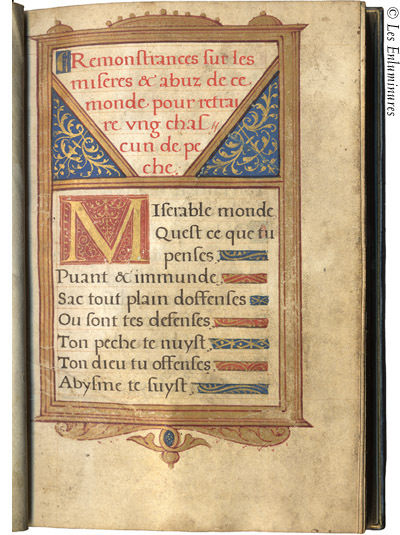 Remonstrances sur les
miseres & abuz de ce
monde pour retrai
re vng chas
cun de pe
che.
Miserable monde
Quest ce que tu
penses
Puant & immunde
Sac tout plain doffenses
Ou sont tes defenses
Ton peche te nuyst
Ton dieu tu offenses
Abysme te suyst
© Les Enluminures